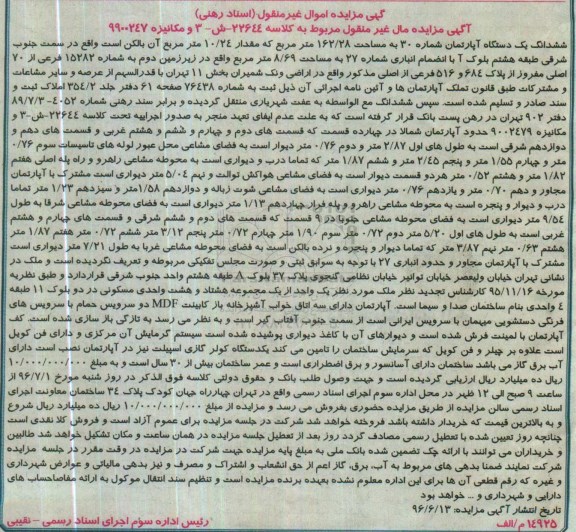 گهی مزایده اموال غیرمنقول (اسناد رهنی)
آگهی مزایده مال غیر منقول مربوط به کلاسه ۲۲۶۴۴-ش- ۳ و مکانیزه ۹۹۰۰۲۴۷
ششدانگ یک دستگاه آپارتمان شماره ۳۰ به مساحت ۱۶۲/۲۸ متر مربع که مقدار ۱۰/۲۴ متر مربع آن بالکن است واقع در سمت جنوب
شرقی طبقه هشتم بلوک آ با انضمام انباری شماره ۲۷ به مساحت ۸/۶۹ متر مربع واقع در زیرزمین دوم به شماره ۱۵۲۸۲ فرعی از ۷۰
اصلی مفروز از پلاک ۶۸۴ و ۵۱۶ فرعی از اصلی مذکور واقع در اراضی ونک شمیران بخش ۱۱ تهران با قدرالسهم از عرصه و سایر مشاعات
و مشترکات طبق قانون تملک آپارتمان ها و آئین نامه اجرائی آن ذیل ثبت به شماره ۷۶۴۳۸ صفحه ۶۱ دفتر جلد ۳۵۴/۲ املاک ثبت و
سند صادر و تسلیم شده است. سپس ششدانگ مع الواسطه به عفت شهریاری منتقل گردیده و برابر سند رهنی شماره ۴۰۵۲-۸۹/۷/۳
دفتر ۹۰۲ تهران در رهن پست بانک قرار گرفته است که به علت عدم ایفای تعهد منجر به صدور اجراییه تحت کلاسه ۲۲۶۴۴-ش-۳ و
مکانیزه ۹۰۰۲۴۷۹ حدود آپارتمان شمالا در چهارده قسمت که قسمت های دوم و چهارم و ششم و هشتم غربی و قسمت های دهم و
دوازدهم شرقی است به طول های اول ۲/۸۷ متر و دوم ۰/۷۶ متر دیوار است به فضای مشاعی محل عبور لوله های تاسیسات سوم ۰/۷۶
متر و چهارم ۱/۵۵ متر و پنجم ۲/۴۵ متر و ششم ۱/۸۷ متر که تماما درب و دیواری است به محوطه مشاعی راهرو و راه پله اصلی هفتم
۱/۸۲ متر و هشتم ۰/۵۲ متر هردو قسمت دیوار است به فضای مشاعی هواکش توالت و نهم ۵/۰۴ متر دیواری است مشترک با آپارتمان
مجاور و دهم ۰/۷۰ متر و یازدهم ۰/۷۶ متر دیواری است به فضای مشاعی شوت زباله و دوازدهم ۱/۵۸متر و سیزدهم ۱/۲۳ متر تماما
درب و دیوار و پنجره است به محوطه مشاعی راهرو و پله فرار چهاردهم ۱/۱۳ متر دیواری است به فضای محوطه مشاعی شرقا به طول
۹/۵۴ متر دیواری است به فضای محوطه مشاعی جنوبا در ۹ قسمت که قسمت های دوم و ششم شرقی و قسمت های چهارم و هشتم
غربی است به طول های اول ۵/۲۰ متر دوم ۰/۷۲ متر سوم ۱/۹۰ متر چهارم ۰/۷۲ متر پنجم ۳/۱۲ متر ششم ۰/۷۲ متر هفتم ۱/۸۷ متر
هشتم ۰/۶۳ متر نهم ۳/۸۷ متر که تماما دیوار و پنجره و نرده بالکن است به فضای محوطه مشاعی غربا به طول ۷/۲۱ متر دیواری است
مشترک با آپارتمان مجاور و حدود انباری ۲۷ با توجه به سوابق ثبتی و صورت مجلس تفکیکی مربوطه و تعریف نگردیده است و ملک در
نشانی تهران خیابان ولیعصر خیابان توانیر خیابان نظامی گنجوی پلاک ۳۷ بلوک A طبقه هشتم واحد جنوب شرقی قرارداردو طبق نظریه
مورخه ۹۵/۱۱/۱۶ کارشناس تجدید نظر ملک مورد نظر یک واحد از یک مجموعه هشتاد و هشت واحدی مسکونی در دو بلوک ۱۱ طبقه
۴ واحدی بنام ساختمان صدا و سیما است. آپارتمان دارای سه اتاق خواب آشپزخانه باز کابینت MDF دو سرویس حمام با سرویس های
فرنگی دستشویی میهمان با سرویس ایرانی است از سمت جنوب آفتاب گیر است و به نظر می رسد به تازگی باز سازی شده است. کف
آپارتمان با لمینت فرش شده است و دیوارهای آن با کاغذ دیواری پوشیده شده است سیستم گرمایش آن مرکزی و دارای فن کویل
است علاوه بر چیلر و فن کویل که سرمایش ساختمان را تامین می کند یکدستگاه کولر گازی اسپیلت نیز در آپارتمان نصب است دارای
آب برق گاز می باشد ساختمان دارای آسانسور و برق اضطراری است و عمر ساختمان بیش از ۳۰ سال است و به مبلغ ۱۰/۰۰۰/۰۰۰/۰۰۰
ریال ده میلیارد ریال ارزیابی گردیده است و جهت وصول طلب بانک و حقوق دولتی کلاسه فوق الذکر در روز شنبه مورخ ۹۶/۷/۱ از
ساعت ۹ صبح الی ۱۲ ظهر در محل اداره سوم اجرای اسناد رسمی واقع در تهران چهارراه جهان کودک پلاک ۳۴ ساختمان معاونت اجرای
اسناد رسمی سالن مزایده از طریق مزایده حضوری بفروش می رسد و مزایده از مبلغ ۱۰/۰۰۰/۰۰۰/۰۰۰ ریال ده میلیارد ریال شروع
و به بالاترین قیمت که خریدار داشته باشد فروخته خواهد شد شرکت در جلسه مزایده برای عموم آزاد است و فروش کلا نقدی است
چنانچه روز تعیین شده با تعطیل رسمی مصادف گردد روز بعد از تعطیل جلسه مزایده در همان ساعت و مکان تشکیل خواهد شد طالبین
و خریداران می توانند با ارائه چک تضمین شده بانک ملی به مبلغ پایه مزایده جهت شرکت در مزایده در وقت مقرر در جلسه مزایده
شرکت نمایند ضمنا بدهی های مربوط به آب، برق، گاز اعم از حق انشعاب و اشتراک و مصرف و نیز بدهی مالیاتی و عوارض شهرداری
و غیره که رقم قطعی آن ها برای این اداره معلوم نشده بعهده برنده مزایده است و تنظیم سند انتقال موکول به ارائه مفاصاحساب های
دارایی و شهرداری و ... خواهد بود
تاریخ انتشار آگهی مزایده: ۹۶/۶/۱۳
۱۴۹۲۵ م/الف
رئیس اداره سوم اجرای اسناد رسمی - نقیبی